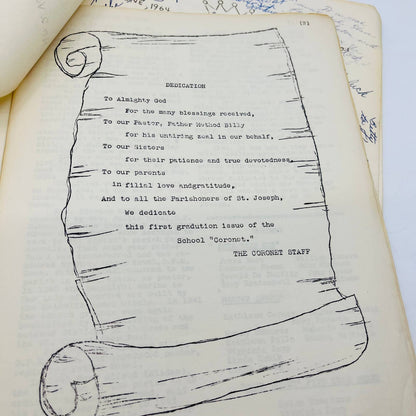 1964
(2)
DEDICATION
To Almighty God
For the many blessings received,
To our Pastor, Father Method Billy
for his untiring zeal in our behalf,
To our Sisters
for their patience and true devotedness,
To our parents
in filial love andgratitude,
And to all the Parishoners of St. Joseph,
We dedicate
this first gradution issue of the
School "Coronet."
THE CORONET STAFF